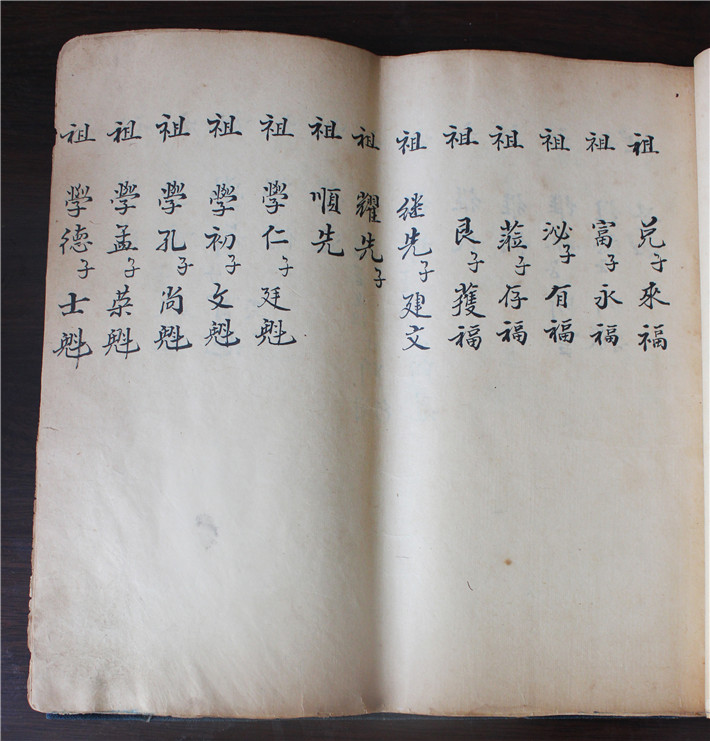 祖 兑子來福
祖 富子永福
祖 泌子有福
祖 蒞子存福
祖 艮子獲福
祖 继先子建文
祖 耀先子
祖 順先
祖 學仁子廷魁
祖 學初子文魁
祖 學孔子尚魁
祖 學孟子荣魁
祖 學德子士魁